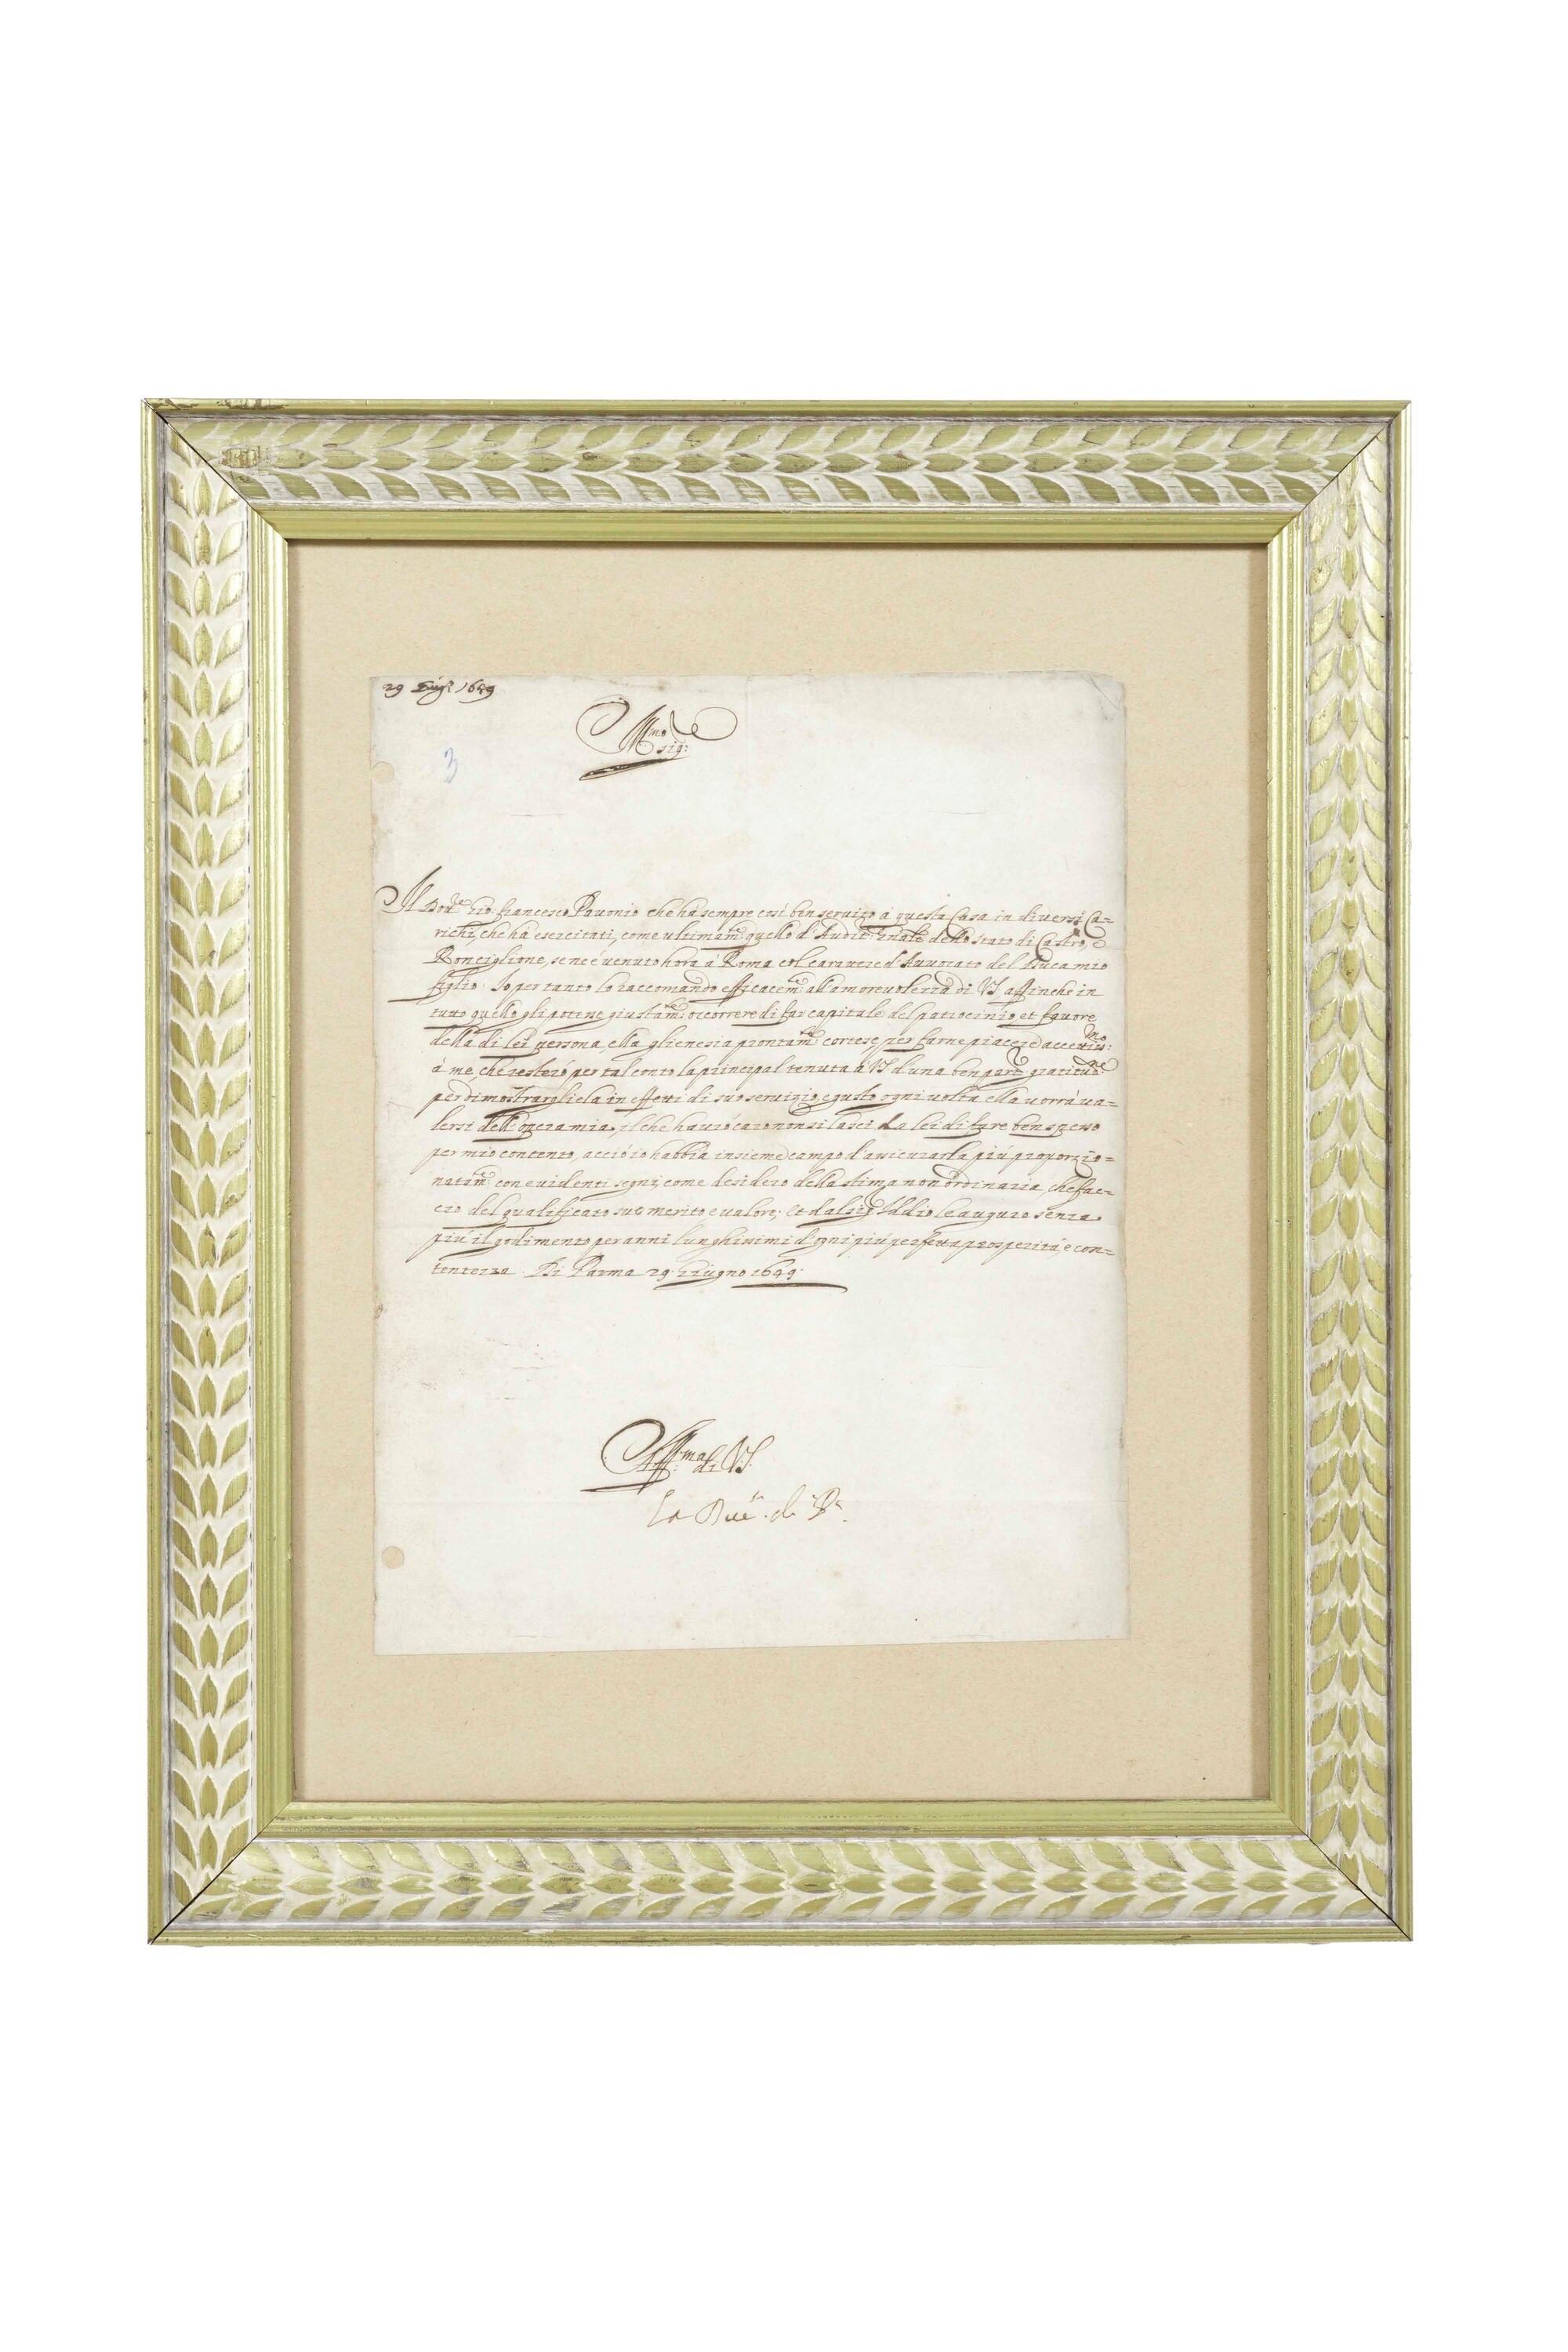 29 Giug.º 1649
Ill.mo
sig:
3
Il Dott.re Gio: Francesco Pavonio che ha sempre così ben servito à questa Casa in diversi Ca=
richi, che hà esercitati, come ultimam.te quello d'Audit.re gñale dello stato di Castro, e
Ronciglione, se ne è venuto hora à Roma col carattere d'Avvocato del Duca mio
figlio. Io per tanto lo raccomando efficacem.te all'amorevolezza di VS, affinche in
tutto quello gli potesse giustam.te occorrere di far capitale del patrocinio, et favore
della di lei persona, ella gliene sia prontam.te cortese, per farne piacere accettiss:mo
à me, che resterò per tal conto la principal tenuta à VS d'una ben part.re gratitud.ne
per dimostrargliela in effetti di suo servizio, e gusto ogni volta ella vorrà va=
lersi dell'opera mia, il che havrò caro non si lasci da lei di fare ben spesso
per mio contento, acciò io habbia insieme campo d'assicurarla più proporzio=
natam.te con evidenti segni, come desidero della stima non ordinaria, che fac=
cio del qualificato suo merito e valore; Et dal sig.r Iddio le auguro senza
più il godimento per anni lunghissimi d'ogni più perfetta prosperità e con=
tentezza. Di Parma 29 Giugno 1649
Aff.ma di VS.
La Duc.sa di P.a